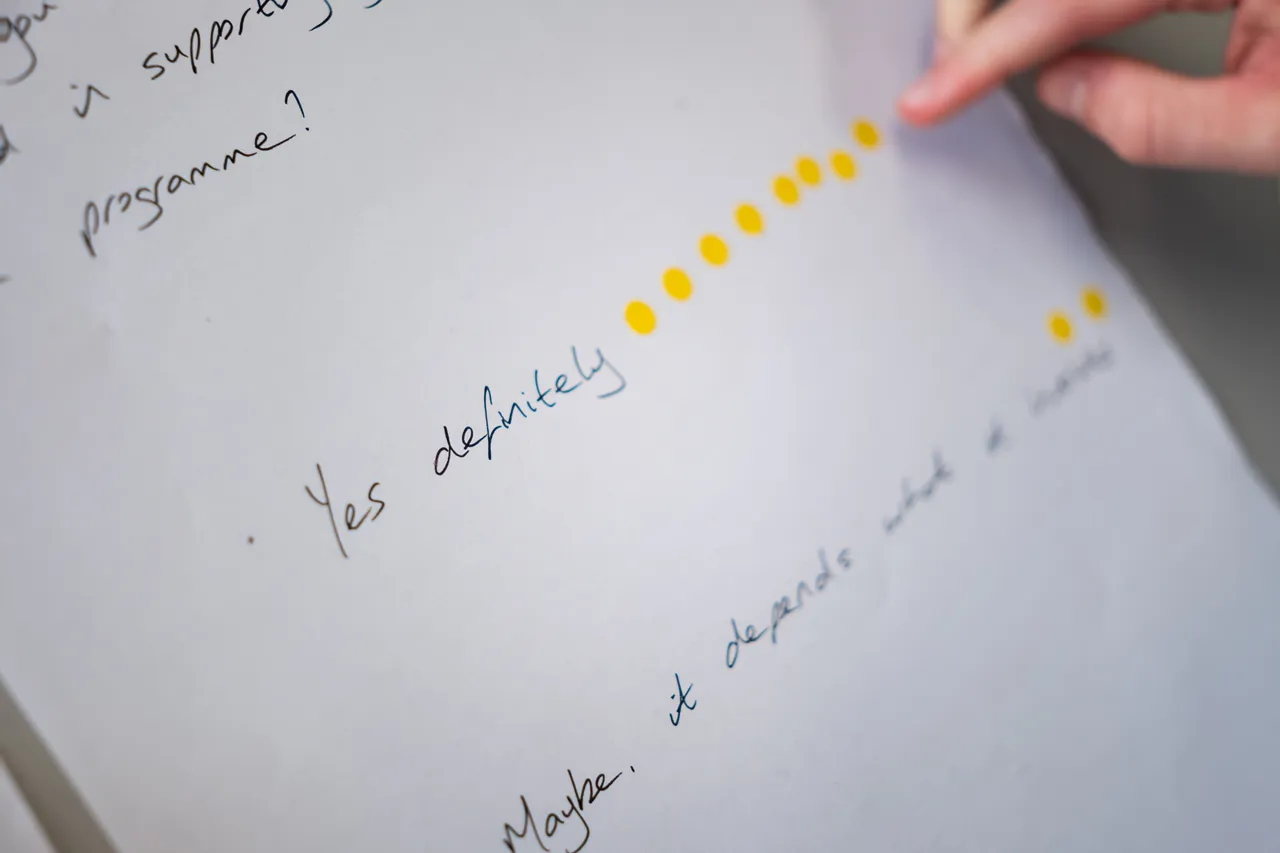 is supporting
programme?
Yes definitely
Maybe. it depends what it